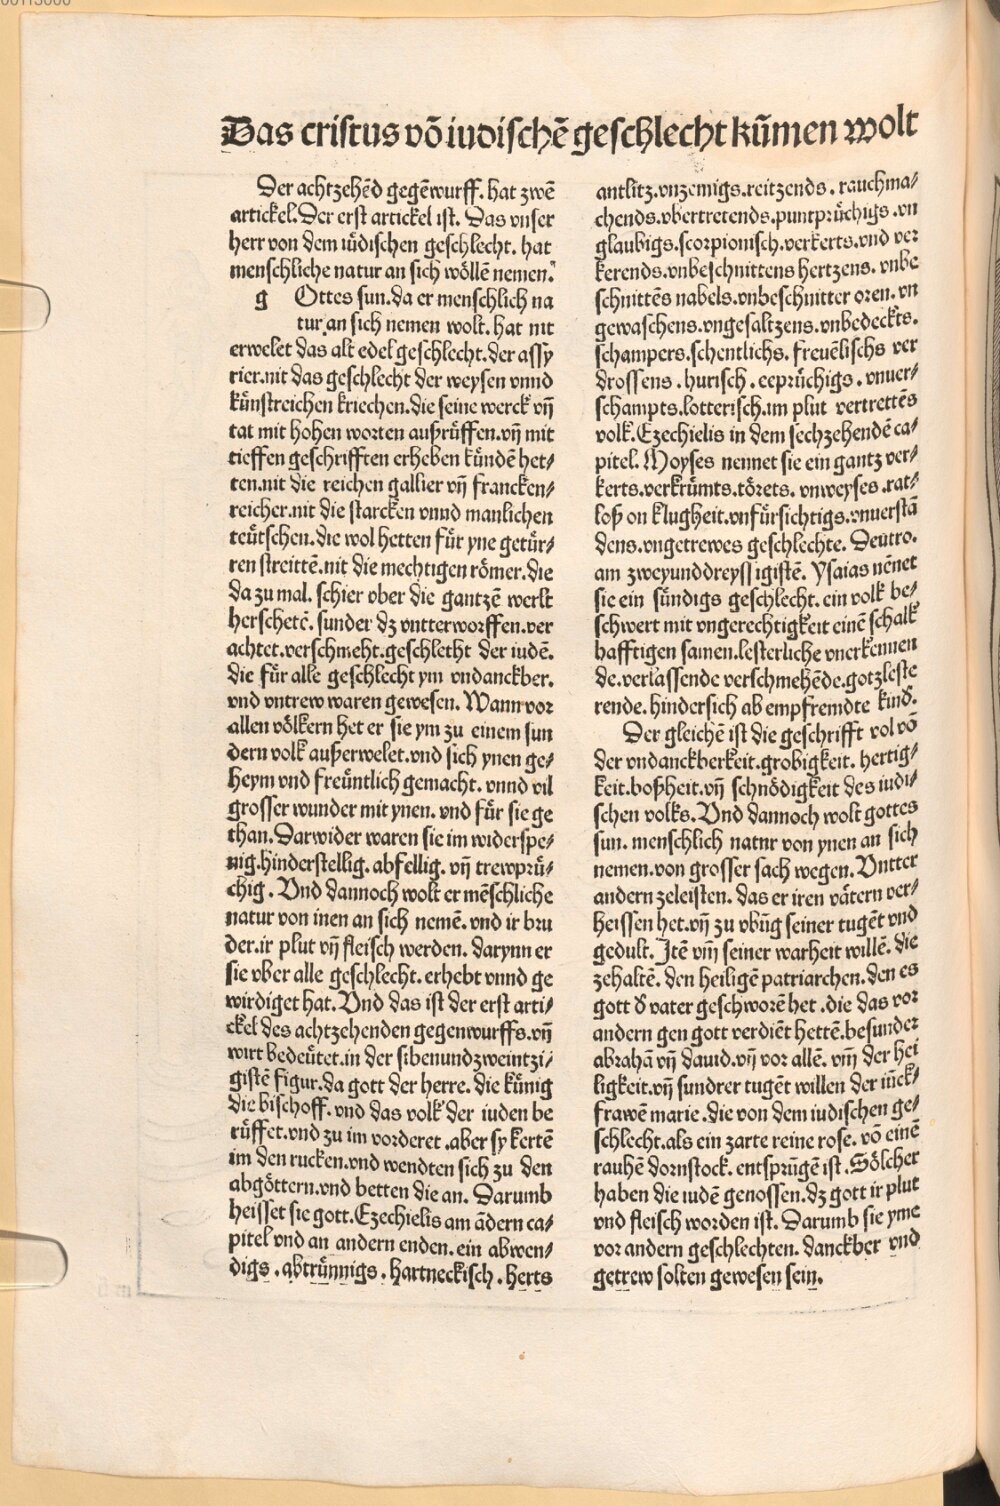 00113000
Das cristus võ iudischẽ geschlecht kũmen wolt
Der achtzehẽd gegẽwurff. hat zwẽ
artickel. Der erst artickel ist. Das vnser
herr von dem iüdischen geschlecht. hat
menschliche natur an sich wöllẽ nemen.
g Ottes sun. da er menschlich na
tur an sich nemen wolt. hat nit
erwelet das alt edel geschlecht. der assy
rier. nit das geschlecht der weysen vnnd
künstreichen kriechen. die seine werck vñ
tat mit hohen worten außrüffen. vñ mit
tieffen geschrifften erheben kündẽ het⸗
ten. nit die reichen gallier vñ francken⸗
reicher. nit die starcken vnnd manlichen
teütschen. die wol hetten für yne getür⸗
ren streittẽ. nit die mechtigen römer. die
da zu mal. schier vber die gantzẽ werlt
herschetẽ. sunder dz vntterworffen. ver
achtet. verschmeht. geschletht der iudẽ.
die für alle geschlecht ym vndanckber.
vnd vntrew waren gewesen. Wann vor
allen völkern het er sie ym zu einem sun
dern volk außerwelet. vnd sich ynen ge⸗
heym vnd freüntlich gemacht. vnnd vil
grosser wunder mit ynen. vnd für sie ge
than. Darwider waren sie im widerspe⸗
nig. hinderstellig. abfellig. vñ trewprü⸗
chig. Vnd dannoch wolt er mẽschliche
natur von inen an sich nemẽ. vnd ir bru
der. ir plut vñ fleisch werden. darynn er
sie vber alle geschlecht. erhebt vnnd ge
wirdiget hat. Vnd das ist der erst arti⸗
ckel des achtzehenden gegenwurffs. vñ
wirt bedeütet. in der sibenundzweintzi⸗
gistẽ figur. da gott der herre. die künig
die bischoff. vnd das volk der iuden be
rüffet. vnd zu im vorderet. aber sy kertẽ
im den rucken. vnd wendten sich zu den
abgöttern. vnd betten die an. Darumb
heisset sie gott. Ezechielis am ãdern ca⸗
pitel vnd an andern enden. ein abwen⸗
digs. abtrünnigs. hartneckisch. herts
antlitz. vnzemigs. reitzends. rauchma⸗
chends. vbertretends. puntprüchigs. vn
glaubigs. scorpionisch. verkerts. vnd ver
kerends. vnbeschnittens hertzens. vnbe
schnittẽs nabels. vnbeschnitter oren. vn
gewaschens. vngesaltzens. vnbedeckts.
schampers. schentlichs. freuẽlischs ver
drossens. hurisch. eeprüchigs. vnuer⸗
schampts. lotterisch. im plut vertrettẽs
volk. Ezechielis in dem sechzehendẽ ca⸗
pitel. Moyses nennet sie ein gantz ver⸗
kerts. verkrümts. törets. vnweyses. rat⸗
loß on klugheit. vnfürsichtigs. vnuerstã
dens. vngetrewes geschlechte. Deutro.
am zweyunddreyssigistẽ. Ysaias nẽnet
sie ein sündigs geschlecht. ein volk be⸗
schwert mit vngerechtigkeit einẽ schalk
hafftigen samen. lesterliche vnerkennen
de. verlassende verschmehẽde. gotzleste
rende. hindersich ab empfremdte kind.
Der gleichẽ ist die geschrifft vol võ
der vndanckberkeit. grobigkeit. hertig⸗
keit. boßheit. vñ schnödigkeit des iudi⸗
schen volks. Vnd dannoch wolt gottes
sun. menschlich natur von ynen an sich
nemen. von grosser sach wegen. Vntter
andern zeleisten. das er iren vätern ver⸗
heissen het. vñ zu vbũg seiner tugẽt vnd
gedult. Itẽ vm̃ seiner warheit willẽ. die
zehaltẽ. den heiligẽ patriarchen. den es
gott đ vater geschworẽ het. die das vor
andern gen gott verdiẽt hettẽ. besunder
abrahã vñ dauid. vñ vor allẽ. vm̃ der hei
ligkeit. vñ sundrer tugẽt willen der iũck⸗
frawẽ marie. die von dem iudischen ge⸗
schlecht. als ein zarte reine rose. võ einẽ
rauhẽ dornstock. entsprũgẽ ist. Sölcher
haben die iudẽ genossen. dz gott ir plut
vnd fleisch worden ist. Darumb sie yme
vor andern geschlechten. danckber vnd
getrew solten gewesen sein.